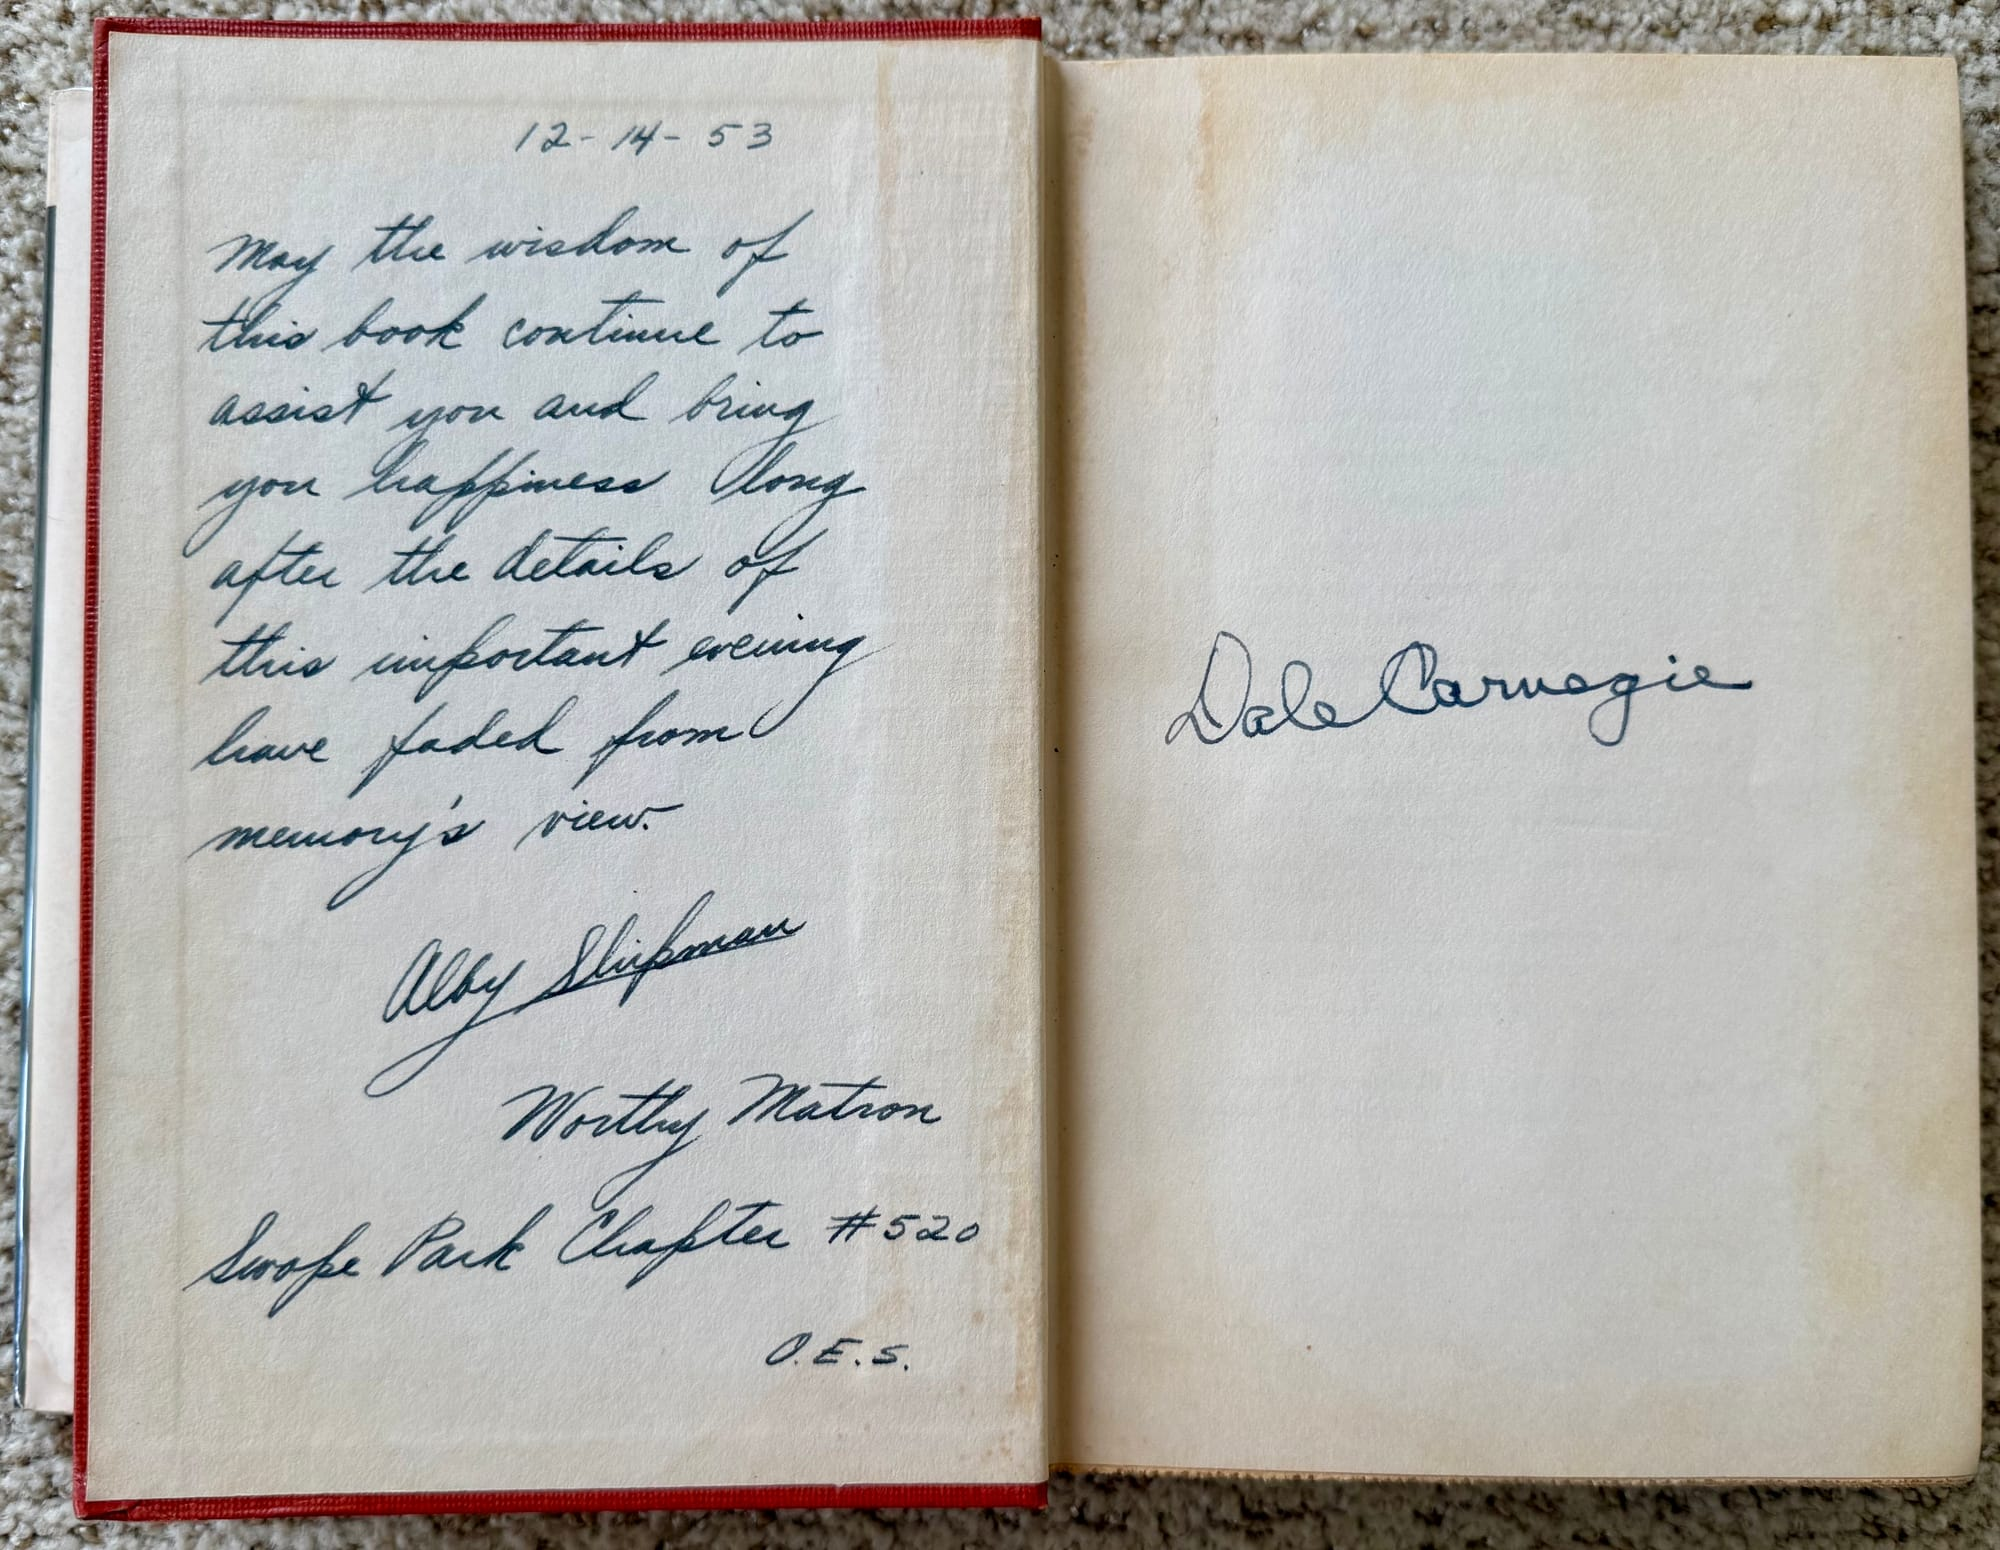 12-14-53
May the wisdom of
this book continue to
assist you and bring
you happiness long
after the details of
this important evening
have faded from
memory's view.
Alby Shipman
Worthy Matron
Swope Park Chapter #520
O.E.S.
Dale Carnegie